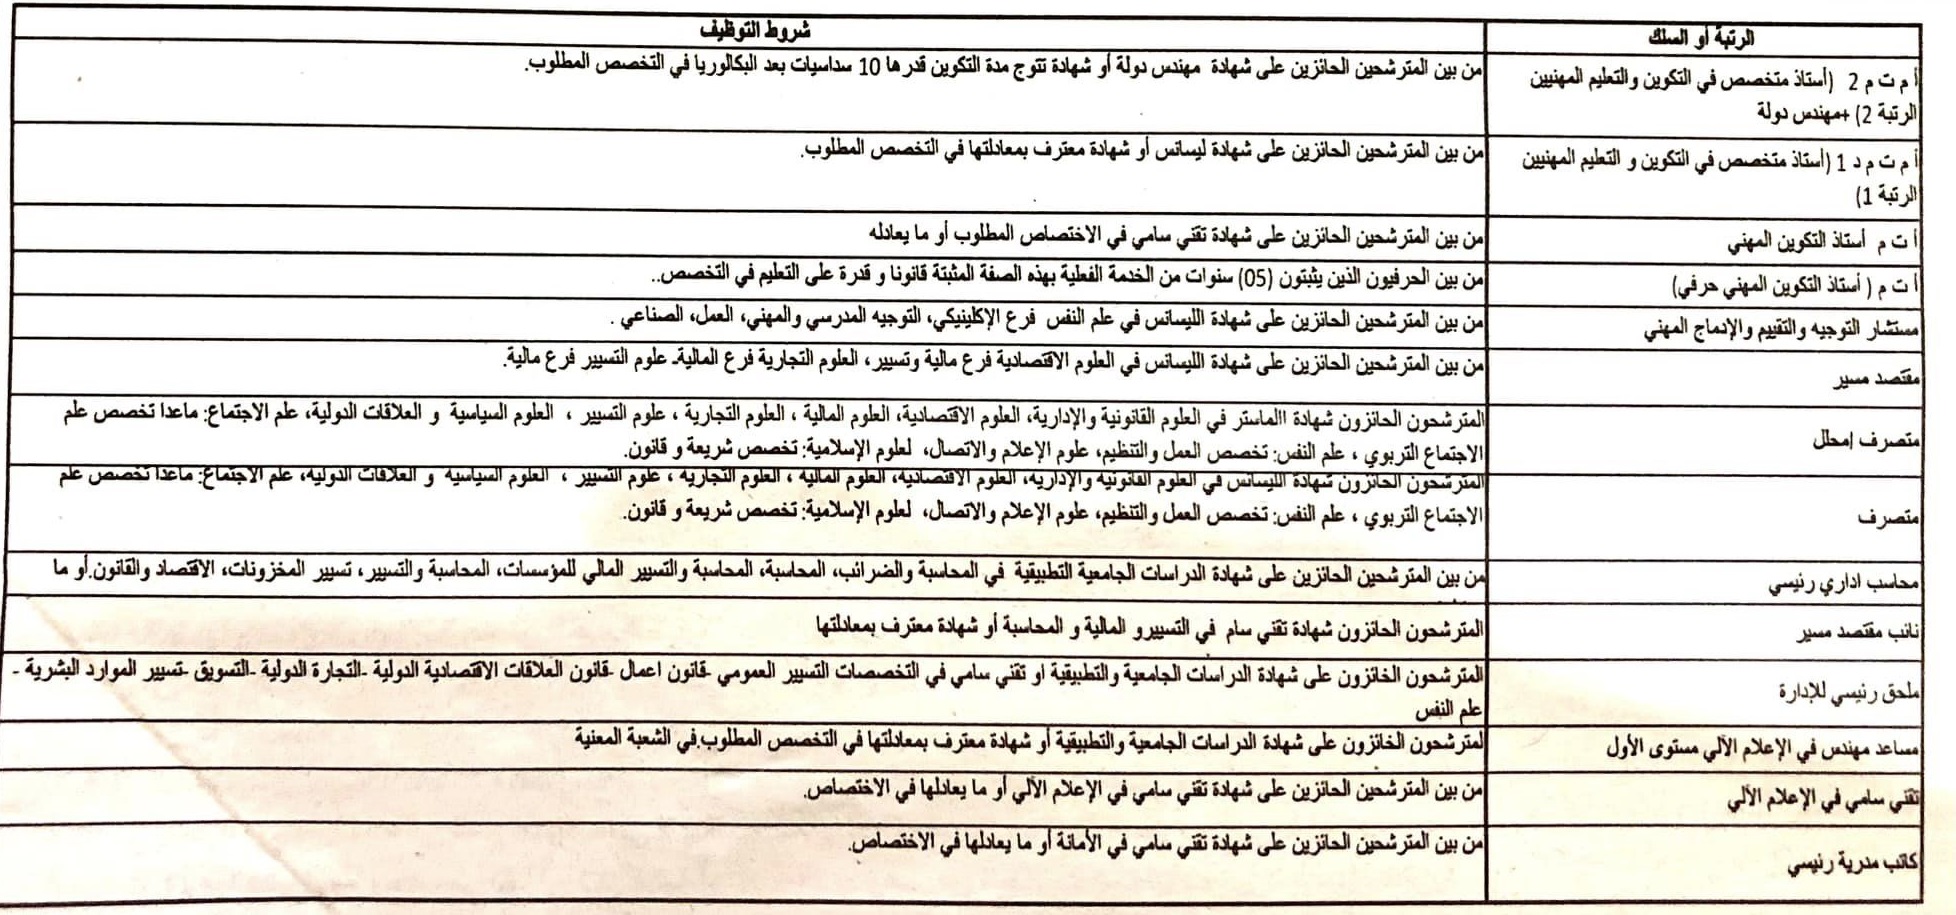 الرتبة أو السلك
شروط التوظيف
أ م ت م 2 (أستاذ متخصص في التكوين والتعليم المهنيين
الرتبة 2) +مهندس دولة
من بين المترشحين الحائزين على شهادة مهندس دولة أو شهادة تتوج مدة التكوين قدرها 10 سداسيات بعد البكالوريا في التخصص المطلوب.
أ م ت م د 1 (أستاذ متخصص في التكوين و التعليم المهنيين
الرتبة 1)
من بين المترشحين الحائزين على شهادة ليسانس أو شهادة معترف بمعادلتها في التخصص المطلوب.
أ ت م أستاذ التكوين المهني
من بين المترشحين الحائزين على شهادة تقني سامي في الاختصاص المطلوب أو ما يعادله
أ ت م ( أستاذ التكوين المهني حرفي)
من بين الحرفيون الذين يثبتون (05) سنوات من الخدمة الفعلية بهذه الصفة المثبتة قانونا و قدرة على التعليم في التخصص..
مستشار التوجيه والتقييم والإدماج المهني
من بين المترشحين الحائزين على شهادة الليسانس في علم النفس فرع الإكلينيكي، التوجيه المدرسي والمهني، العمل، الصناعي .
مقتصد مسير
من بين المترشحين الحائزين على شهادة الليسانس في العلوم الاقتصادية فرع مالية وتسيير، العلوم التجارية فرع المالية- علوم التسيير فرع مالية.
متصرف إمحلل
المترشحون الحائزون شهادة االماستر في العلوم القانونية والإدارية، العلوم الاقتصادية، العلوم المالية ، العلوم التجارية ، علوم التسيير ، العلوم السياسية و العلاقات الدولية، علم الاجتماع: ماعدا تخصص علم
الاجتماع التربوي ، علم النفس: تخصص العمل والتنظيم، علوم الإعلام والاتصال، لعلوم الإسلامية: تخصص شريعة و قانون.
متصرف
المترشحون الحائزون شهادة الليسانس في العلوم القانونية والإدارية، العلوم الاقتصادية، العلوم المالية ، العلوم التجارية ، علوم التسيير ، العلوم السياسية و العلاقات الدولية، علم الاجتماع: ماعدا تخصص علم
الاجتماع التربوي ، علم النفس: تخصص العمل والتنظيم، علوم الإعلام والاتصال، لعلوم الإسلامية: تخصص شريعة و قانون.
محاسب اداري رئيسي
من بين المترشحين الحائزين على شهادة الدراسات الجامعية التطبيقية في المحاسبة والضرائب، المحاسبة، المحاسبة والتسيير المالي للمؤسسات، المحاسبة والتسيير، تسيير المخزونات، الاقتصاد والقانون.أو ما
نائب مقتصد مسير
المترشحون الحائزون شهادة تقني سام في التسييرو المالية و المحاسبة أو شهادة معترف بمعادلتها
ملحق رئيسي للإدارة
المترشحون الخائزون على شهادة الدراسات الجامعية والتطبيقية او تقني سامي في التخصصات التسيير العمومي -قانون اعمال -قانون العلاقات الاقتصادية الدولية -التجارة الدولية -التسويق -تسيير الموارد البشرية -
علم النفس
مساعد مهندس في الإعلام الآلي مستوى الأول
لمترشحون الخائزون على شهادة الدراسات الجامعية والتطبيقية أو شهادة معترف بمعادلتها في التخصص المطلوب.في الشعبة المعنية
تقني سامي في الإعلام الآلي
من بين المترشحين الحائزين على شهادة تقني سامي في الإعلام الآلي أو ما يعادلها في الاختصاص.
كاتب مدرية رئيسي
من بين المترشحين الحائزين على شهادة تقني سامي في الأمانة أو ما يعادلها في الاختصاص.